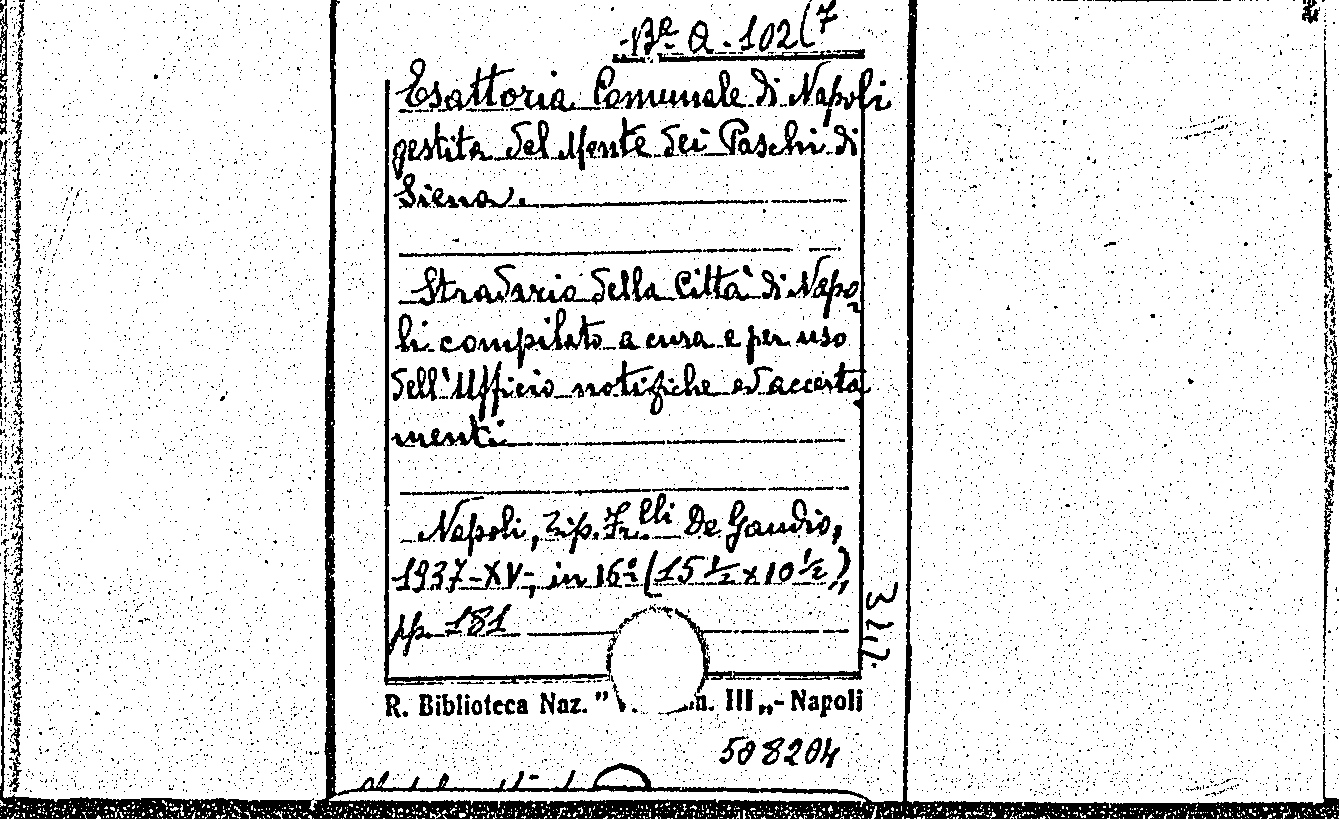 Bª Q. 102(7
Esattoria Comunale di Napoli
gestita dal Monte dei Paschi di
Siena.
Stradario della Città di Napo-
li compilato a cura e per uso
dell'Ufficio notifiche ed accerta
menti
Napoli, Tip. F.lli De Gaudio,
1937-XV-, in 16º (15 ½ x 10 ½),
pp. 181
R. Biblioteca Naz. " III „- Napoli
508204